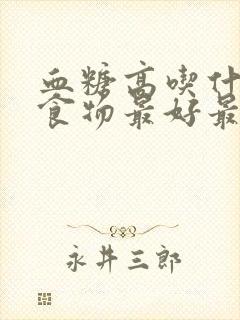 血糖高喫什
食物最好最
永井三郎